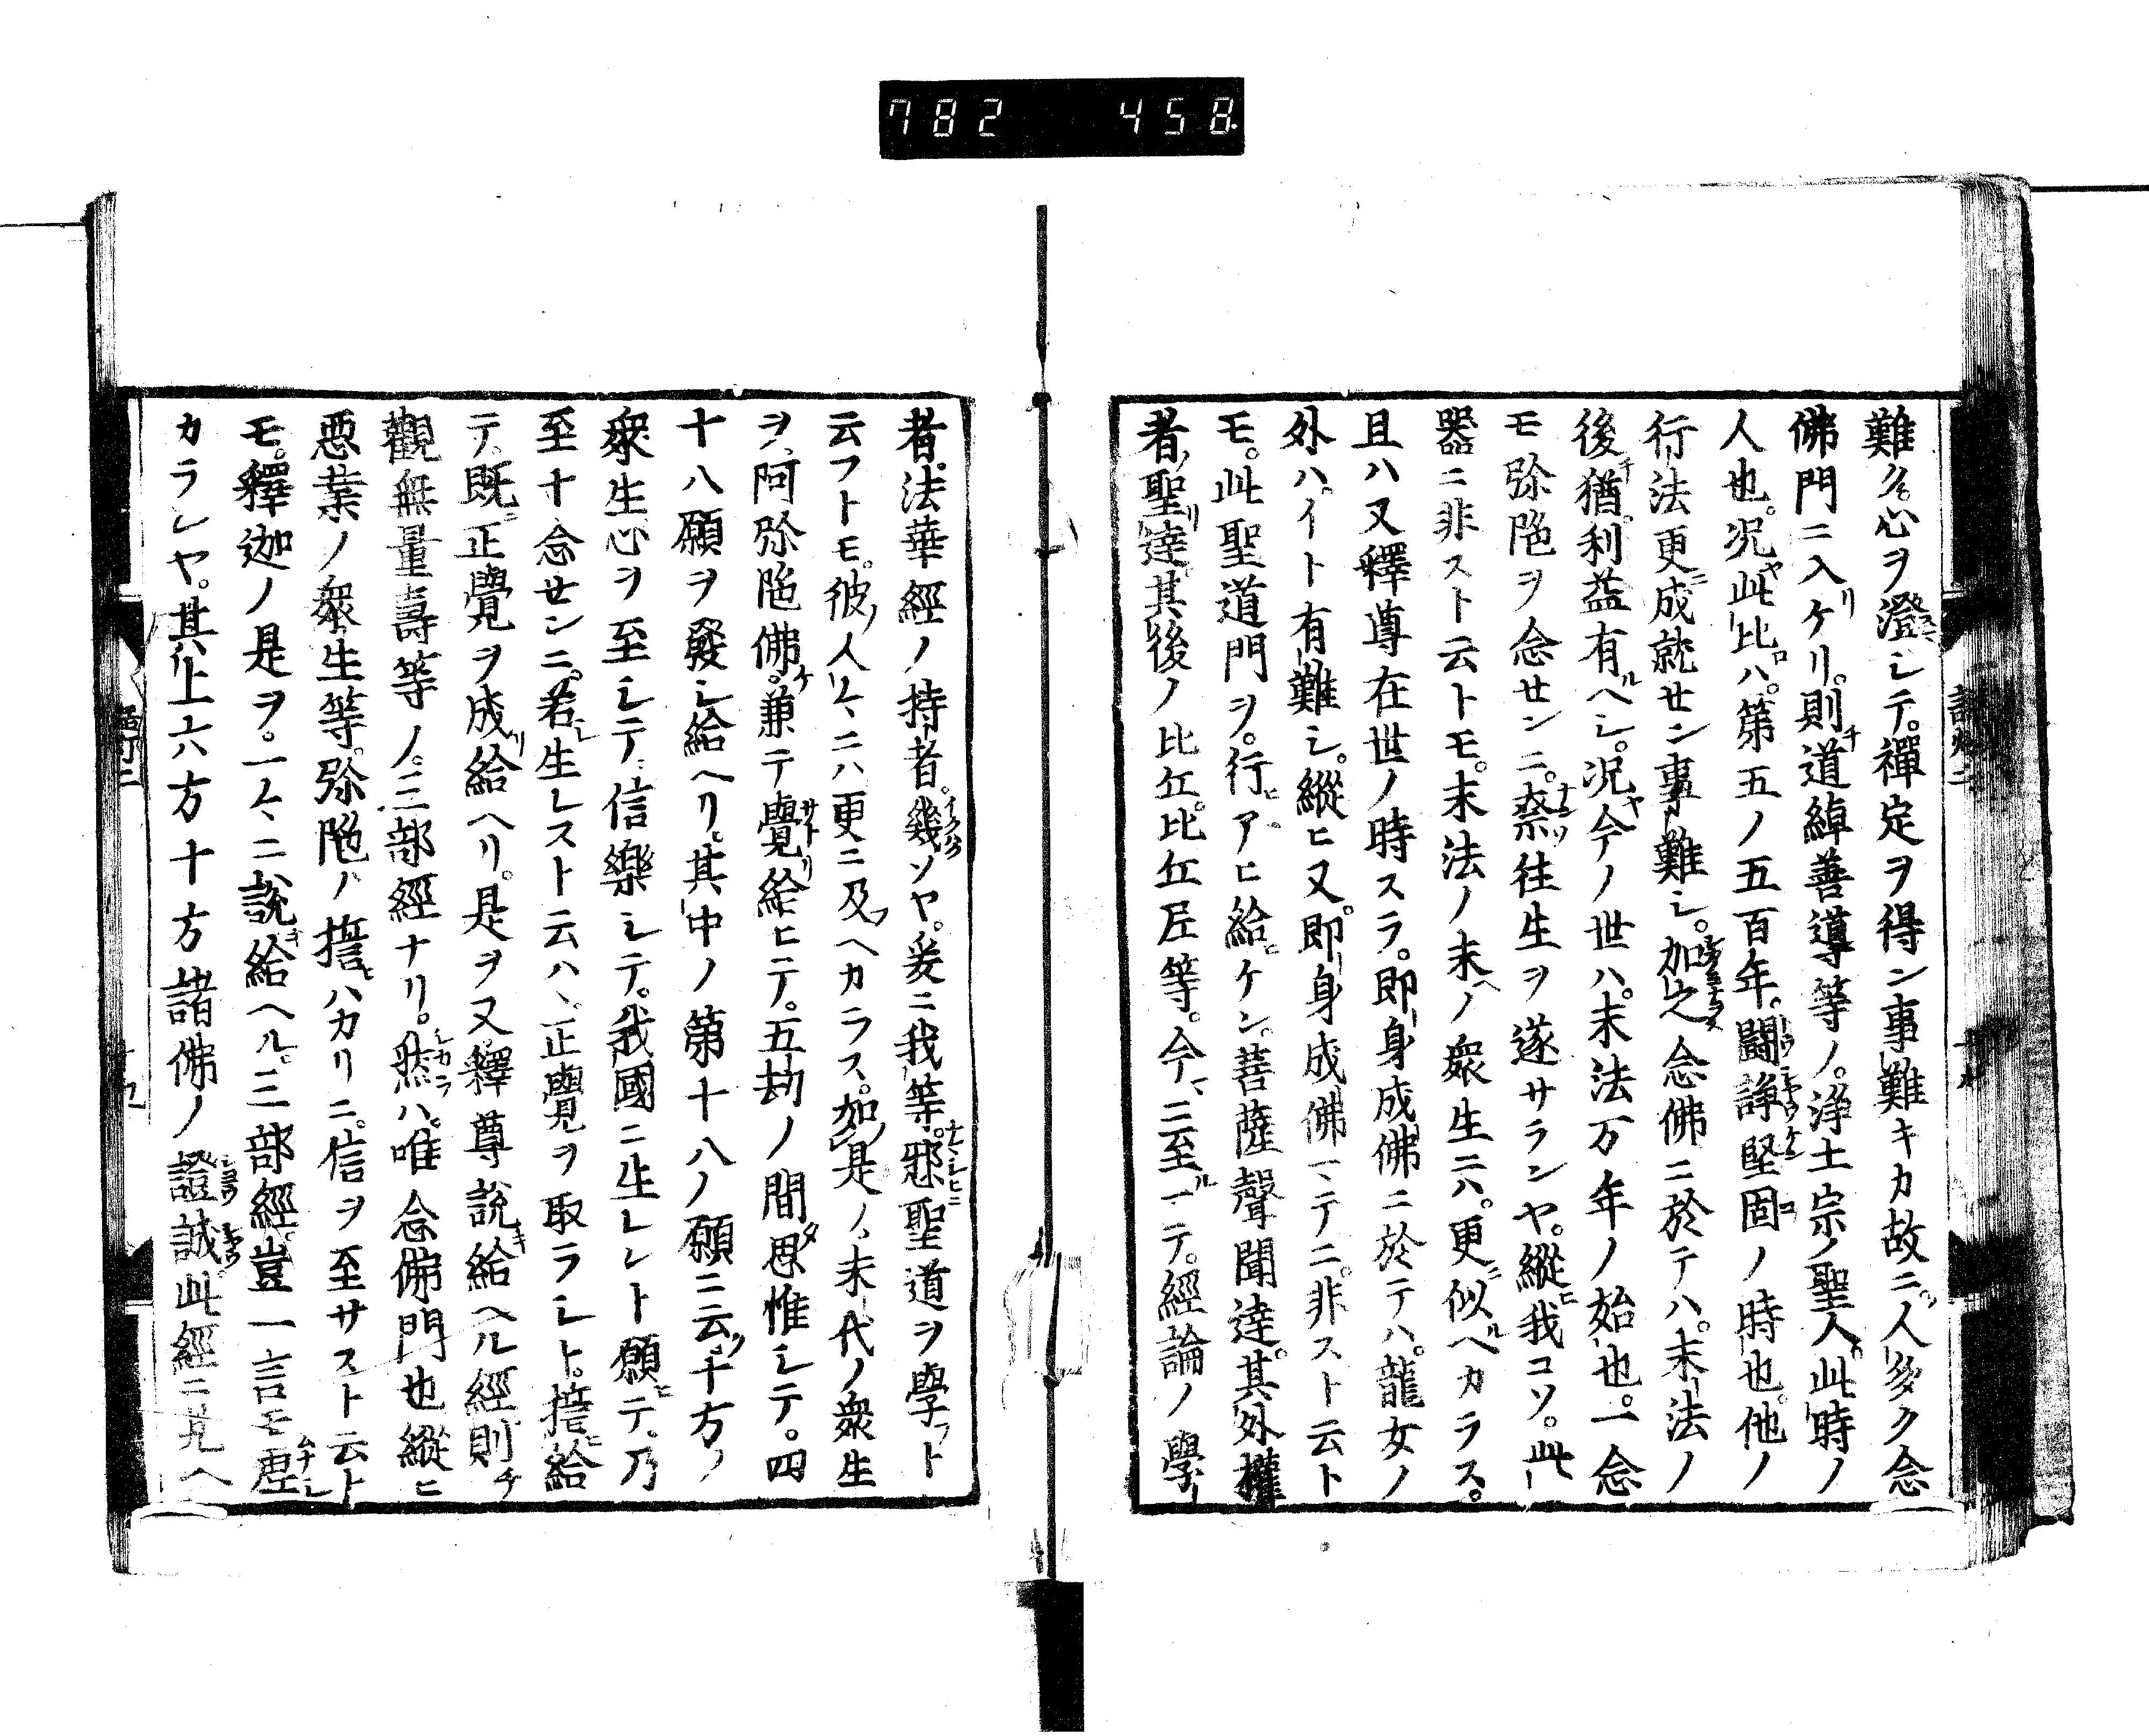 782 458.
難ク心ヲ澄シテ。禪定ヲ得ン事難キカ故ニ。人多ク念
佛門ニ入ケリ。則道綽善導等ノ。浄土宗ノ聖人。此時ノ
人也。况此比ハ。第五ノ五百年。闘諍堅固ノ時也。他ノ
行法更成就セン事難シ。加之念佛ニ於テハ。末法ノ
後猶利益有ヘシ。况今ノ世ハ。末法万年ノ始也。一念
モ弥陁ヲ念センニ。奈往生ヲ遂サランヤ。縱我コソ。此
器ニ非スト云トモ。末法ノ末ノ衆生ニハ。更似ヘカラス。
且ハ又釋尊在世ノ時スラ。即身成佛ニ於テハ。龍女ノ
外ハ。イト有難シ。縱ヒ又。即身成佛マテニ。非スト云ト
モ。此聖道門ヲ。行アヒ給ケン。菩薩聲聞達。其外權
者聖達其後ノ比丘。比丘尼等。今ニ至マテ。經論ノ學
者。法華經ノ持者。幾ソヤ。爰ニ我等。邪聖道ヲ學フト
云フトモ。彼人々ニハ更ニ及ヘカラス。如是ノ末代ノ衆生
ヲ、阿弥陁佛。兼テ覺給ヒテ。五劫ノ間思惟シテ。四
十八願ヲ發シ給ヘリ。其中ノ第十八ノ願ニ云。十方ノ
衆生心ヲ至シテ信樂シテ。我國ニ生レント願テ。乃
至十念センニ。若生レスト云ハ、正覺ヲ取ラシト。誓給
テ。既正覺ヲ成給ヘリ。是ヲ又釋尊説給ヘル經。則
觀無量壽等ノ三部經ナリ。然ハ。唯念佛門也縱ヒ
悪業ノ衆生等。弥陁ノ誓ハカリニ。信ヲ至サスト云ト
モ。釋迦ノ是ヲ。一々ニ説給ヘル。三部經。豈一言モ虚
カラシヤ。其上六方十方諸佛ノ證誠此經ニ見ヘ